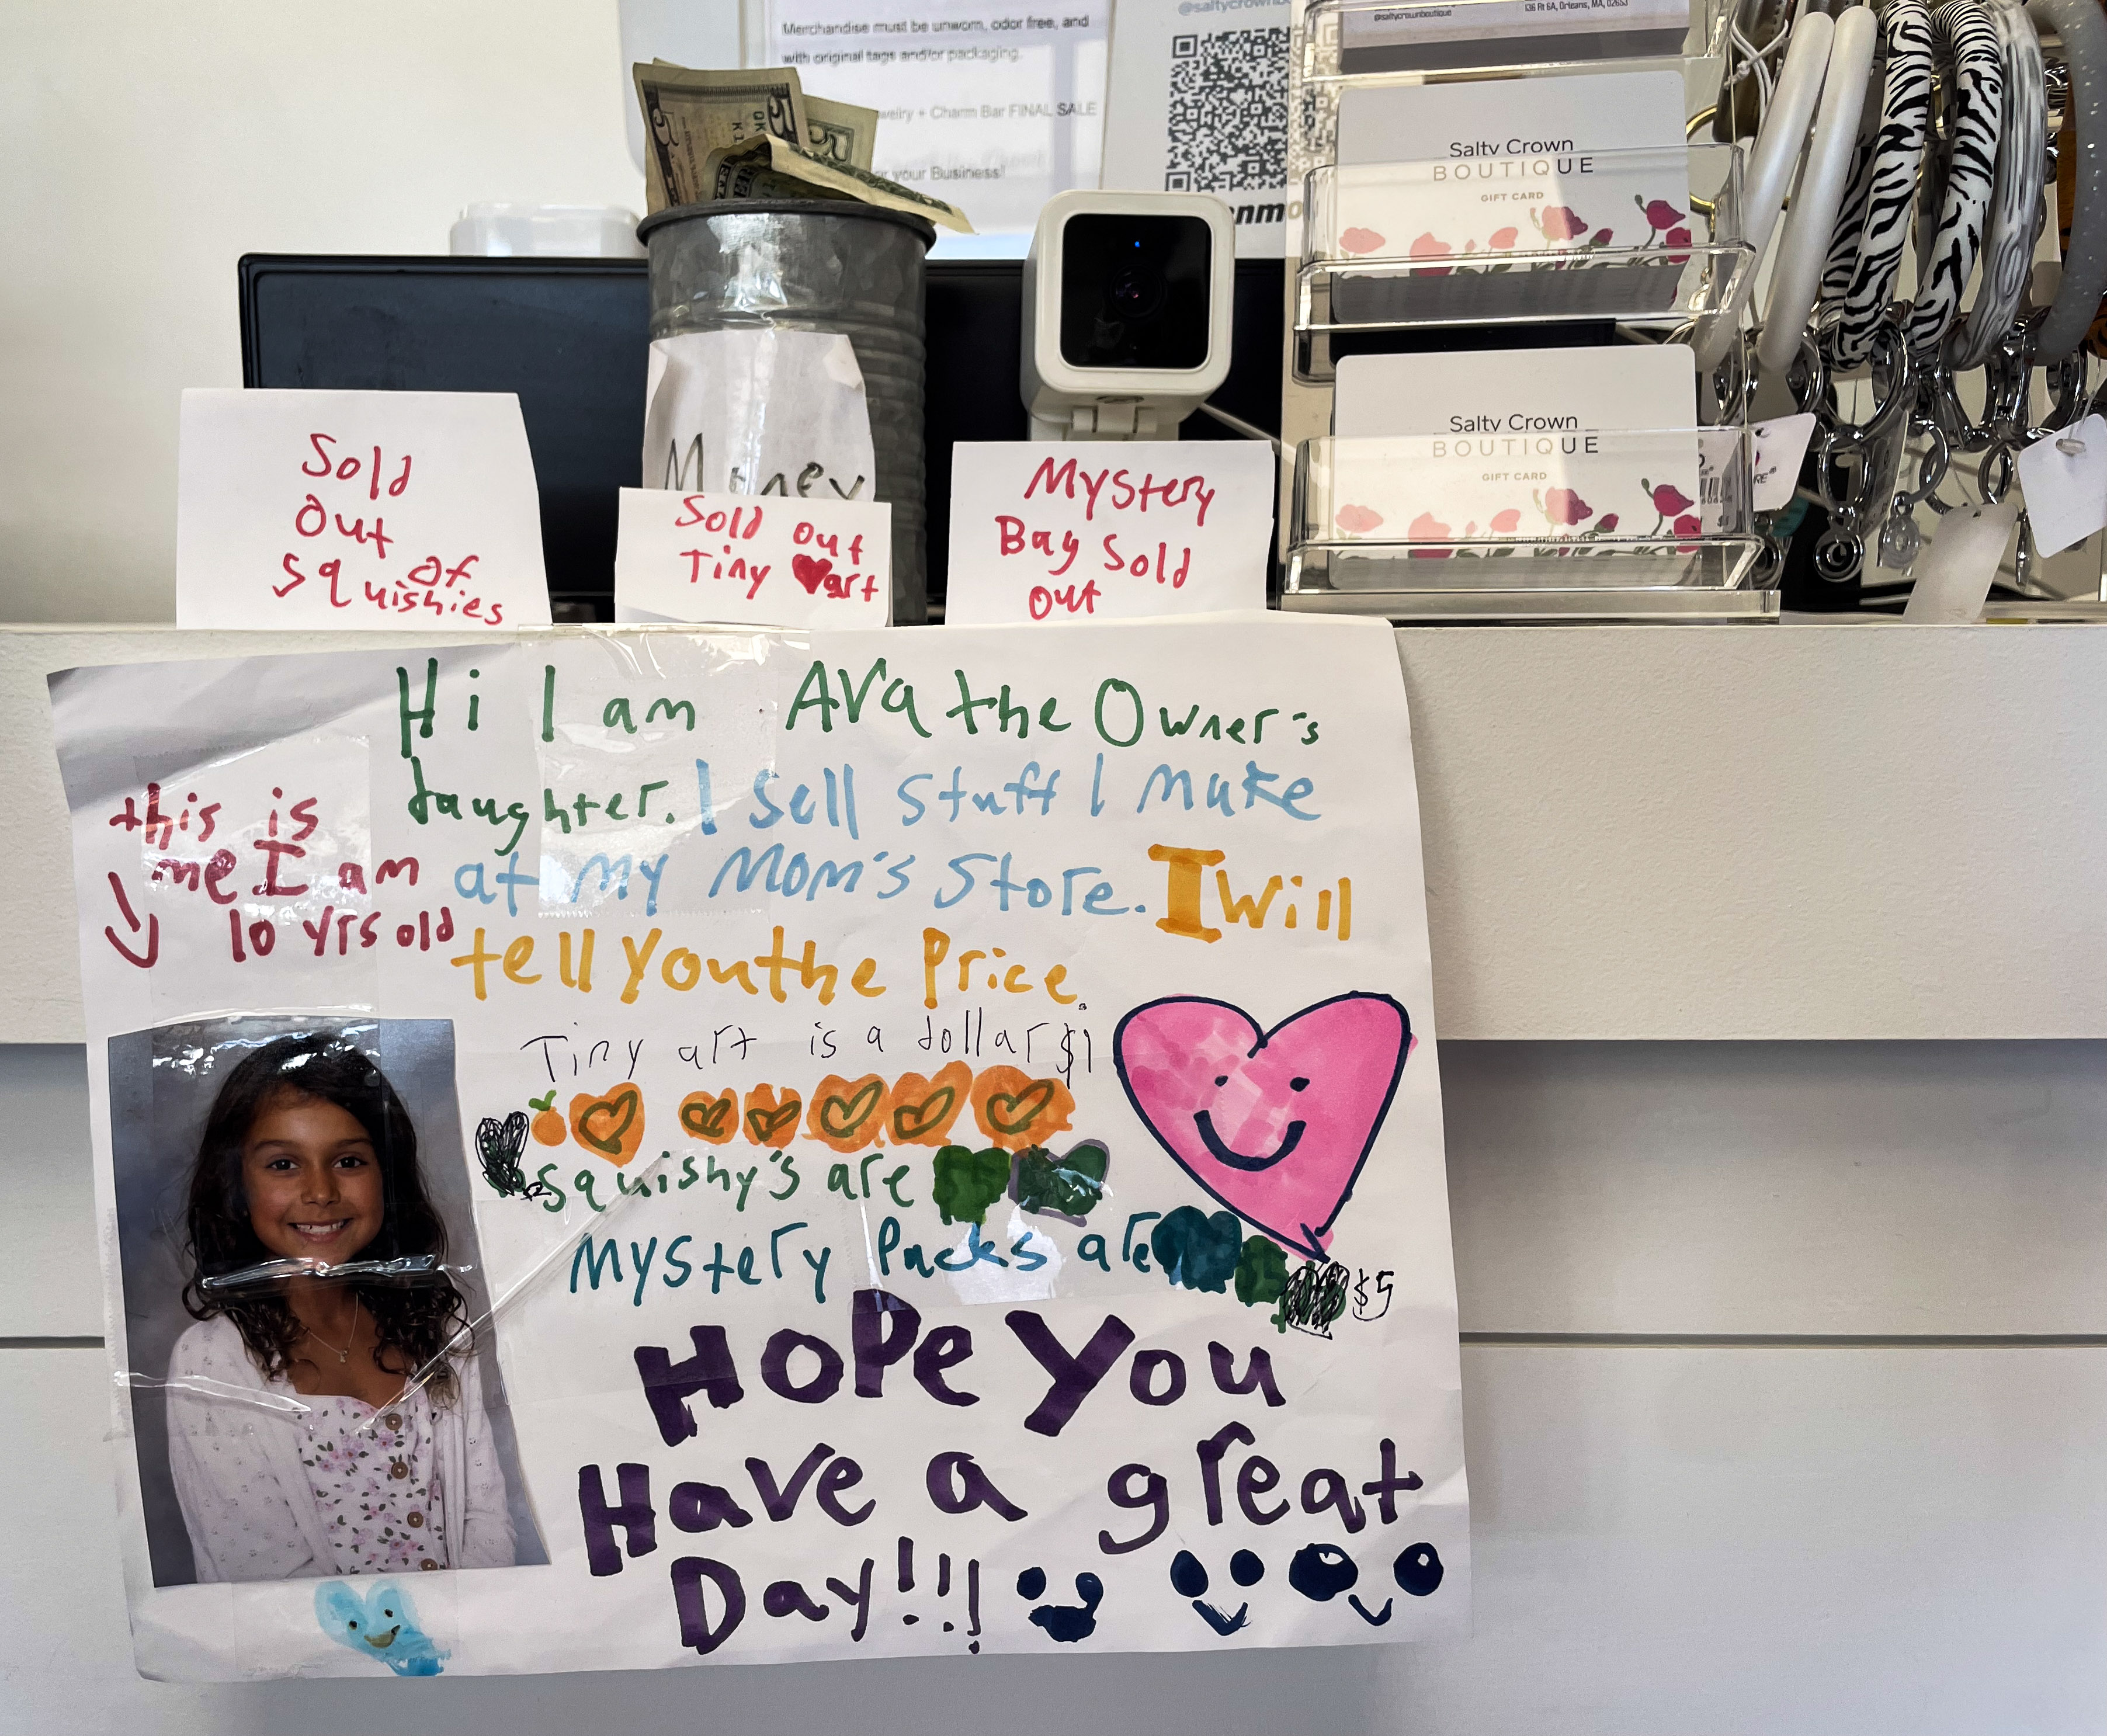 @saltycrownboutique
136 Rt 6A, Orleans, MA, 02653
Merchandise must be unworn, odor free, and
with original tags and/or packaging.
+ Charm Bar FINAL SALE
your Business!
5
5
Salty Crown
BOUTIQUE
GIFT CARD
Salty Crown
BOUTIQUE
GIFT CARD
Money
Sold
Out
of
squishies
Sold Out
Tiny ❤art
Mystery
Bag Sold
Out
Hi I am Ava the Owner's
daughter. I sell stuff I make
at my Mom's Store. I Will
tell you the Price.
this is
me I am
10 yrs old
Tiny art is a dollar $1
squishy's are
Mystery Packs are $5
Hope You
Have a great
Day!!!